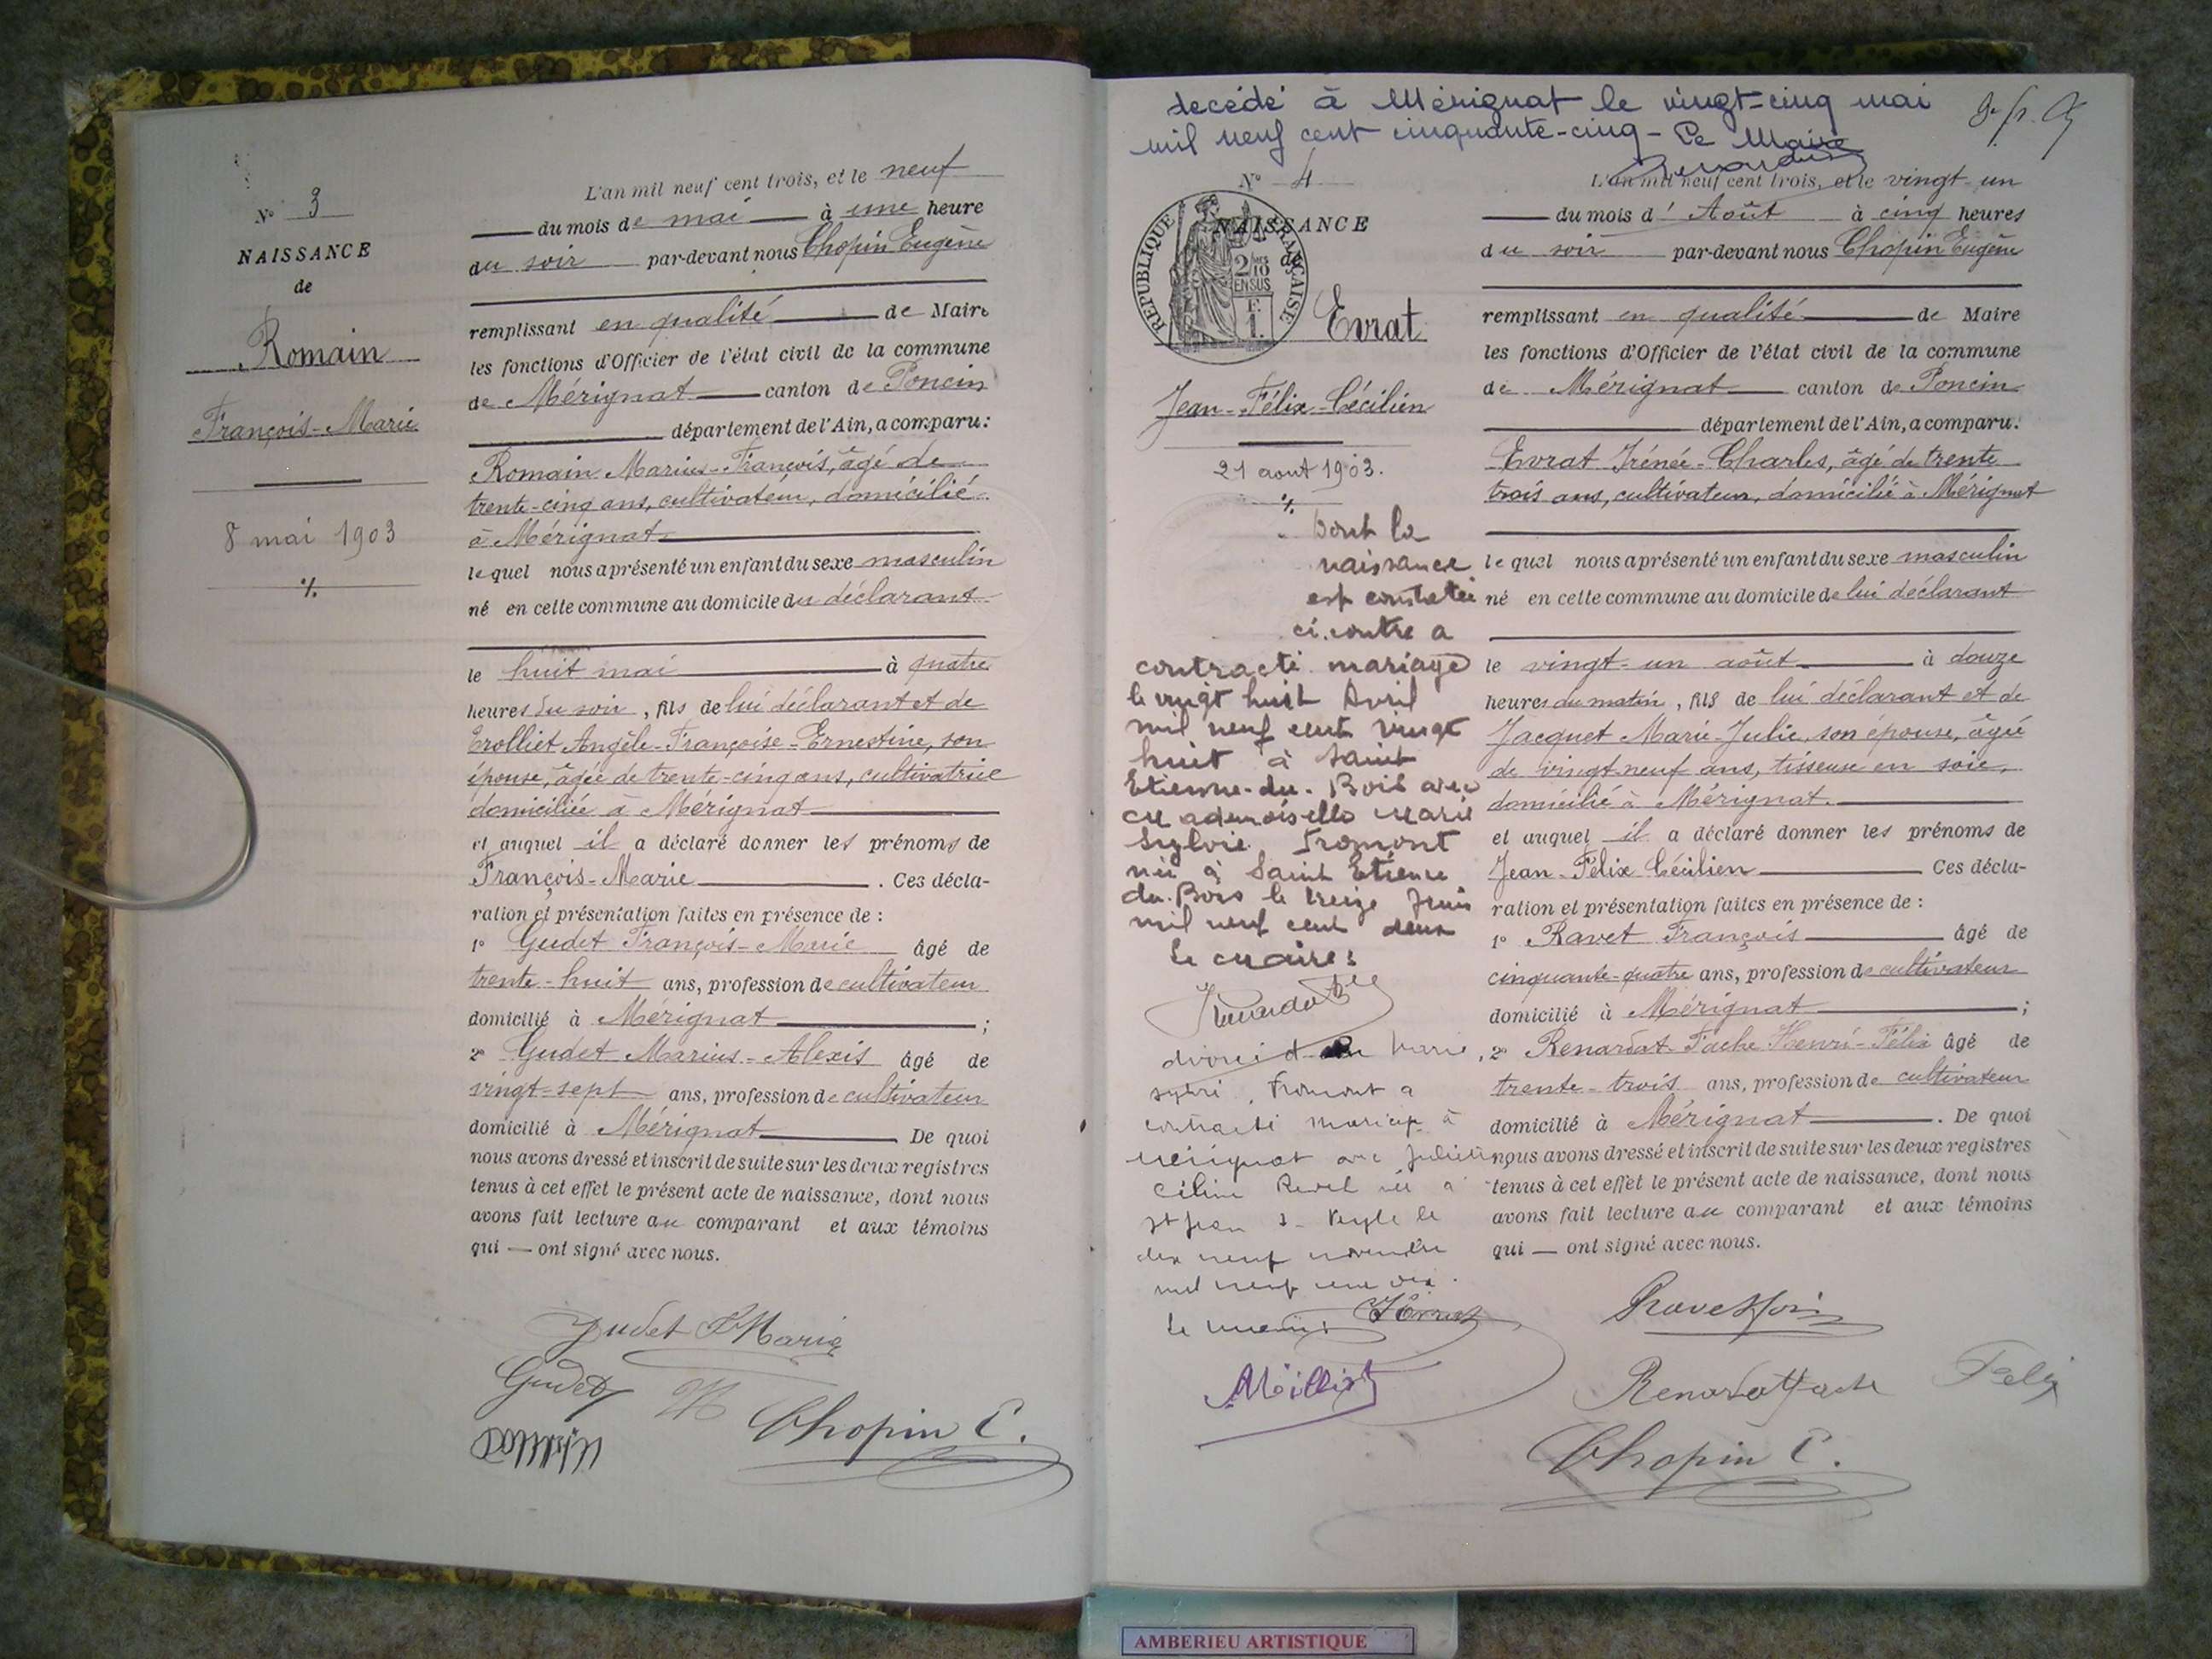 N° 3
NAISSANCE
de
Romain
François-Marie
8 mai 1903
L'an mil neuf cent trois, et le neuf
du mois de mai à une heure
du soir par-devant nous Chopin Eugène
remplissant en qualité de Maire
les fonctions d'Officier de l'état civil de la commune
de Mérignat canton de Poncin
département de l'Ain, a comparu:
Romain Marius-François, âgé de
trente-cinq ans, cultivateur, domicilié
à Mérignat
lequel nous a présenté un enfant du sexe masculin
né en cette commune au domicile du déclarant
le huit mai à quatre
heures du soir, fils de lui déclarant et de
Trolliet Angèle-Françoise-Ernestine, son
épouse, âgée de trente-cinq ans, cultivatrice
domiciliée à Mérignat
et auquel il a déclaré donner les prénoms de
François-Marie. Ces décla-
ration et présentation faites en présence de :
1° Gudet François-Marie âgé de
trente-huit ans, profession de cultivateur
domicilié à Mérignat ;
2° Gudet Marius-Alexis âgé de
vingt-sept ans, profession de cultivateur
domicilié à Mérignat De quoi
nous avons dressé et inscrit de suite sur les deux registres
tenus à cet effet le présent acte de naissance, dont nous
avons fait lecture au comparant et aux témoins
qui — ont signé avec nous.
Gudet F Marie
Gudet M
Chopin E.
decédé à Mérignat le vingt-cinq mai
mil neuf cent cinquante-cinq - Le Maire
N° 4
NAISSANCE
de
REPUBLIQUE FRANÇAISE
2/10 EN SUS
1 F.
Evrat
Jean-Félix-Cécilien
21 aout 1903.
Dont la
naissance
est constatée
ci.contre a
contracté mariage
le vingt huit Avril
mil neuf cent vingt
huit à Saint
Etienne-du-Bois avec
Mademoiselle Marie
Sylvie Fromont
née à Saint Etienne
du-Bois le treize Juin
mil neuf cent deux
Le Maire:
divorcé de Marie
Fromont a
contracté mariage à
Mérignat avec
Revel née à
St Jean le
dix neuf novembre
mil neuf cent dix.
Le Maire
L'an mil neuf cent trois, et le vingt-un
du mois d'Août à cinq heures
du soir par-devant nous Chopin Eugène
remplissant en qualité de Maire
les fonctions d'Officier de l'état civil de la commune
de Mérignat canton de Poncin
département de l'Ain, a comparu:
Evrat Irénée-Charles, âgé de trente
trois ans, cultivateur, domicilié à Mérignat
lequel nous a présenté un enfant du sexe masculin
né en cette commune au domicile de lui déclarant
le vingt-un août à douze
heures du matin, fils de lui déclarant et de
Jacquet Marie-Julie, son épouse, âgée
de vingt-neuf ans, tisseuse en soie,
domicilié à Mérignat.
et auquel il a déclaré donner les prénoms de
Jean-Félix Cécilien Ces décla-
ration et présentation faites en présence de :
1° Ravet François âgé de
cinquante-quatre ans, profession de cultivateur
domicilié à Mérignat ;
2° Renardat-Fache Henri-Félix âgé de
trente-trois ans, profession de cultivateur
domicilié à Mérignat. De quoi
nous avons dressé et inscrit de suite sur les deux registres
tenus à cet effet le présent acte de naissance, dont nous
avons fait lecture au comparant et aux témoins
qui — ont signé avec nous.
Renardat fache Felix
Chopin E.
AMBERIEU ARTISTIQUE